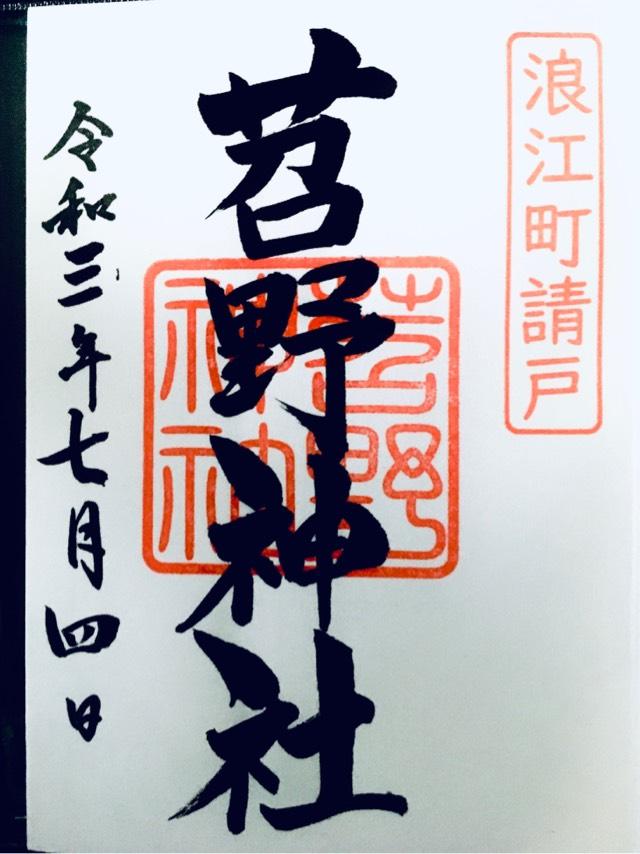 浪江町請戸
苕野神社
苕野神社
令和三年七月四日